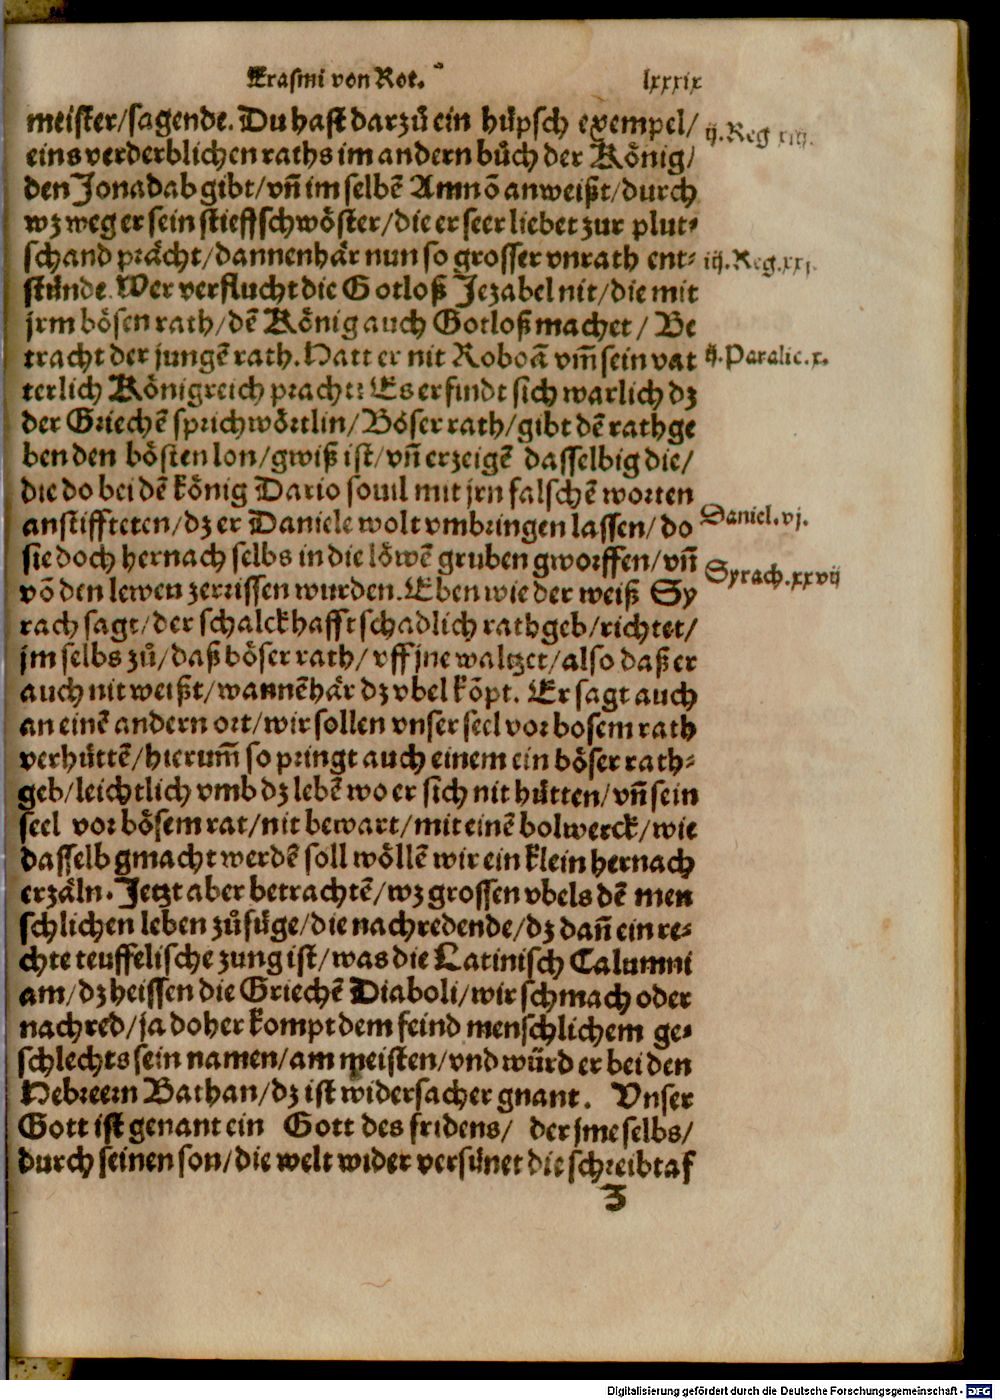 Erasmi von Rot. lxxxix
meister/sagende. Du hast darzů ein hüpsch exempel/
ij. Reg xiij.
eins verderblichen raths im andern bůch der König/
den Jonadab gibt/vñ im selbē Amnō anweißt/durch
wz weg er sein stieffschwöster/die er seer liebet zur plut⸗
schand prächt/dannenhär nun so grosser vnrath ent⸗
iij. Reg. xxj.
stünde. Wer verflucht die Gotloß Jezabel nit/die mit
jrm bösen rath/dē König auch Gotloß machet/ Be
tracht der jungē rath. Hatt er nit Roboā vm̄ sein vat
ij. Paralic. x.
terlich Königreich pracht: Es erfindt sich warlich dz
der Griechē sprichwörtlin/Böser rath/gibt dē rathge
ben den bösten lon/gwiß ist/vñ erzeigē dasselbig die/
die do bei dē könig Dario souil mit jrn falschē worten
anstiffteten/dz er Daniele wolt vmbringen lassen/do
Daniel. vj.
sie doch hernach selbs in die löwē gruben gworffen/vñ
vō den lewen zerrissen wurden. Eben wie der weiß Sy
Syrach. xxvij
rach sagt/der schalckhafft schadlich rathgeb/richtet/
jm selbs zů/daß böser rath/vff jne waltzet/also daß er
auch nit weißt/wannēhär dz vbel kōpt. Er sagt auch
an einē andern ort/wir sollen vnser seel vor bosem rath
verhüttē/hierum̄ so pringt auch einem ein böser rath⸗
geb/leichtlich vmb dz lebē wo er sich nit hütten/vñ sein
seel vor bösem rat/nit bewart/mit einē bolwerck/wie
dasselb gmacht werdē soll wöllē wir ein klein hernach
erzäln. Jetzt aber betrachtē/wz grossen vbels dē men
schlichen leben zůfüge/die nachredende/dz dañ ein re⸗
chte teuffelische zung ist/was die Latinisch Calumni
am/dz heissen die Griechē Diaboli/wir schmach oder
nachred/ja do her kompt dem feind menschlichem ge⸗
schlechts sein namen/am meisten/vnd würd er bei den
Hebreern Bathan/dz ist widersacher gnant. Vnser
Gott ist genant ein Gott des fridens/ der jme selbs/
durch seinen son/die welt wider versünet die schreibt af
Z
Digitalisierung gefördert durch die Deutsche Forschungsgemeinschaft - DFG